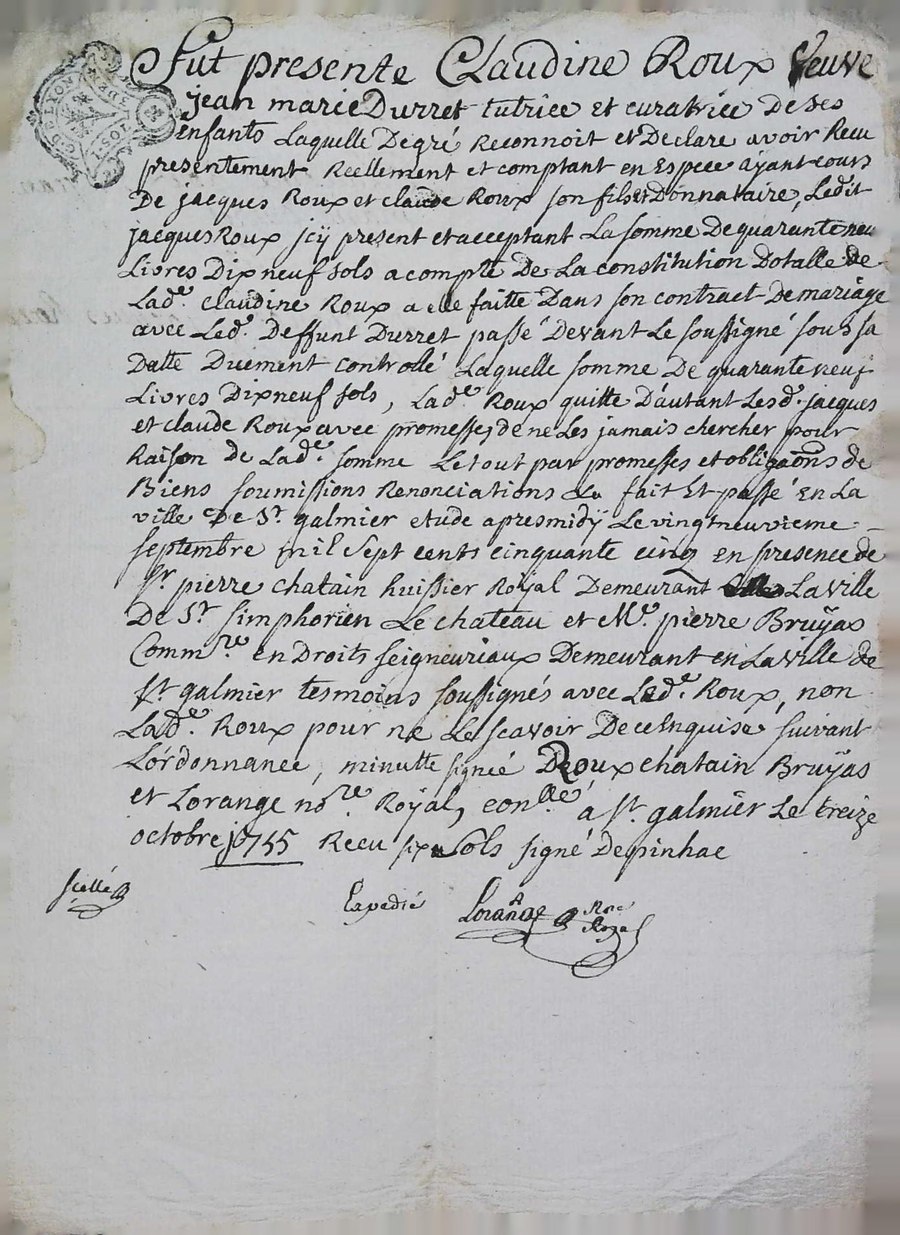 Fut presente Claudine Roux Veuve
jean marie Durret tutrice et curatrice de ses
enfants Laquelle De gré Reconnoit et Declare avoir Recu
presentement Reellement et comptant en Espece ayant cours
De jacques Roux et claude Roux son fils et Donnataire, Ledit
jacques Roux jcy present et acceptant La somme De quarante neuf
Livres Dix neuf sols a compte De La constitution Dotalle de
Lad.e claudine Roux a elle faitte Dans son contract De mariage
avec Led.t Deffunt Durret passé Devant Le soussigné sous sa
Datte Duement controllé Laquelle somme De quarante neuf
Livres Dix neuf sols, Lad.e Roux quitte D'autant Lesd.s jacques
et claude Roux avec promesses, de ne Les jamais chercher pour
Raison de Lad.e somme Le tout par promesses et obligaons de
Biens soumissions Renonciations fait Et passé En La
ville De St. galmier etude apres midy Le vingt neuvieme
septembre mil sept cents cinquante cinq en presence de
Sr. pierre chatain huissier Royal Demeurant La ville
De St. simphorien Le chateau et Me. pierre Bruyas
Comm.re en Droits seigneuriaux Demeurant en La ville de
St. galmier tesmoins soussignés avec Led.t Roux, non
Lad.e Roux pour ne Le scavoir De ce Enquise suivant
L'ordonnance, minutte signée Roux chatain Bruyas
et Lorange no.re Royal, con.llé a St. galmier Le treize
octobre 1755 Recu six sols signé Depinhac
scellé
Expedié Lorange Nore
Royal